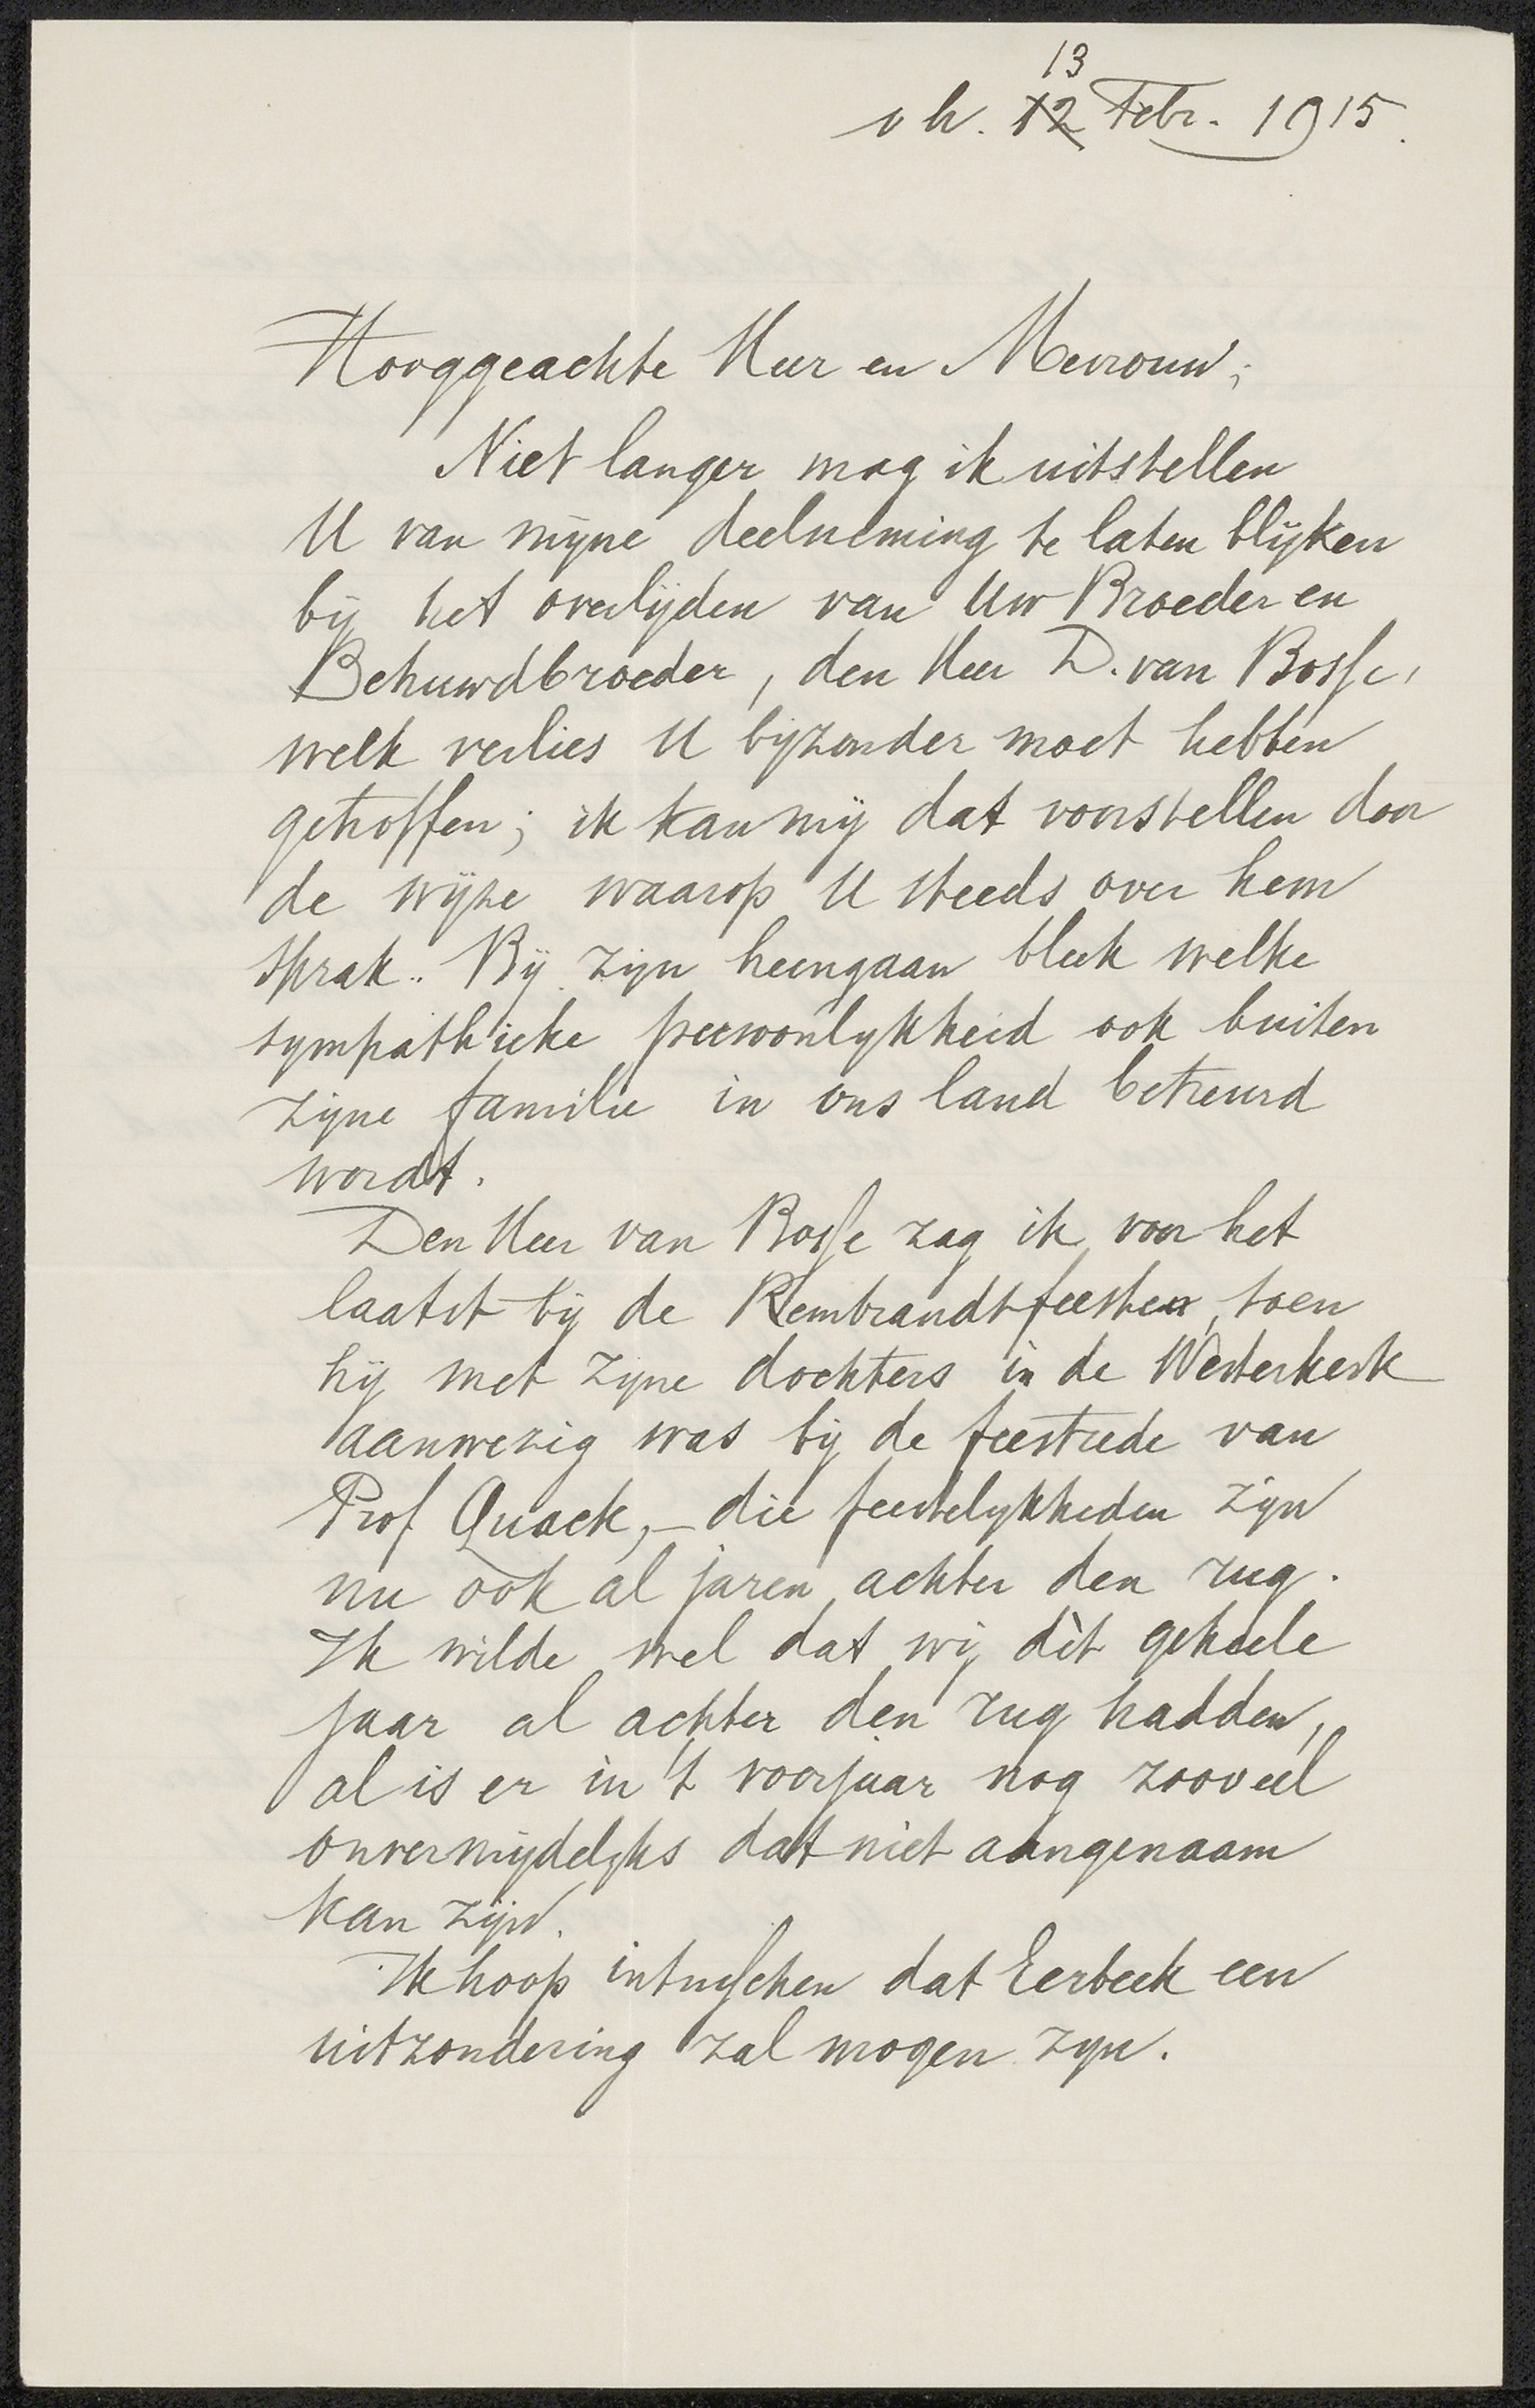 13
v h. 12 Febr. 1915.
Hooggeachte Heer en Mevrouw;
Niet langer mag ik uitstellen
U van mijne deelneming te laten blijken
bij het overlijden van Uw Broeder en
Behuwdbroeder, den Heer D. van Bosse,
welk verlies U bijzonder moet hebben
getroffen; ik kan mij dat voorstellen door
de wijze waarop U steeds over hem
sprak.. Bij zijn heengaan bleek welke
sympathieke persoonlijkheid ook buiten
zijne familie in ons land betreurd
wordt.
Den Heer van Bosse zag ik voor het
laatst bij de Rembrandtfeesten, toen
hij met zijne dochters in de Westerkerk
aanwezig was bij de feestrede van
Prof Quack, – die feestelijkheden zijn
nu ook al jaren achter den rug.
Ik wilde wel dat wij dit geheele
jaar al achter den rug hadden,
al is er in 't voorjaar nog zooveel
onvermijdelijks dat niet aangenaam
kan zijn.
Ik hoop intusschen dat Eerbeek een
uitzondering zal mogen zijn.